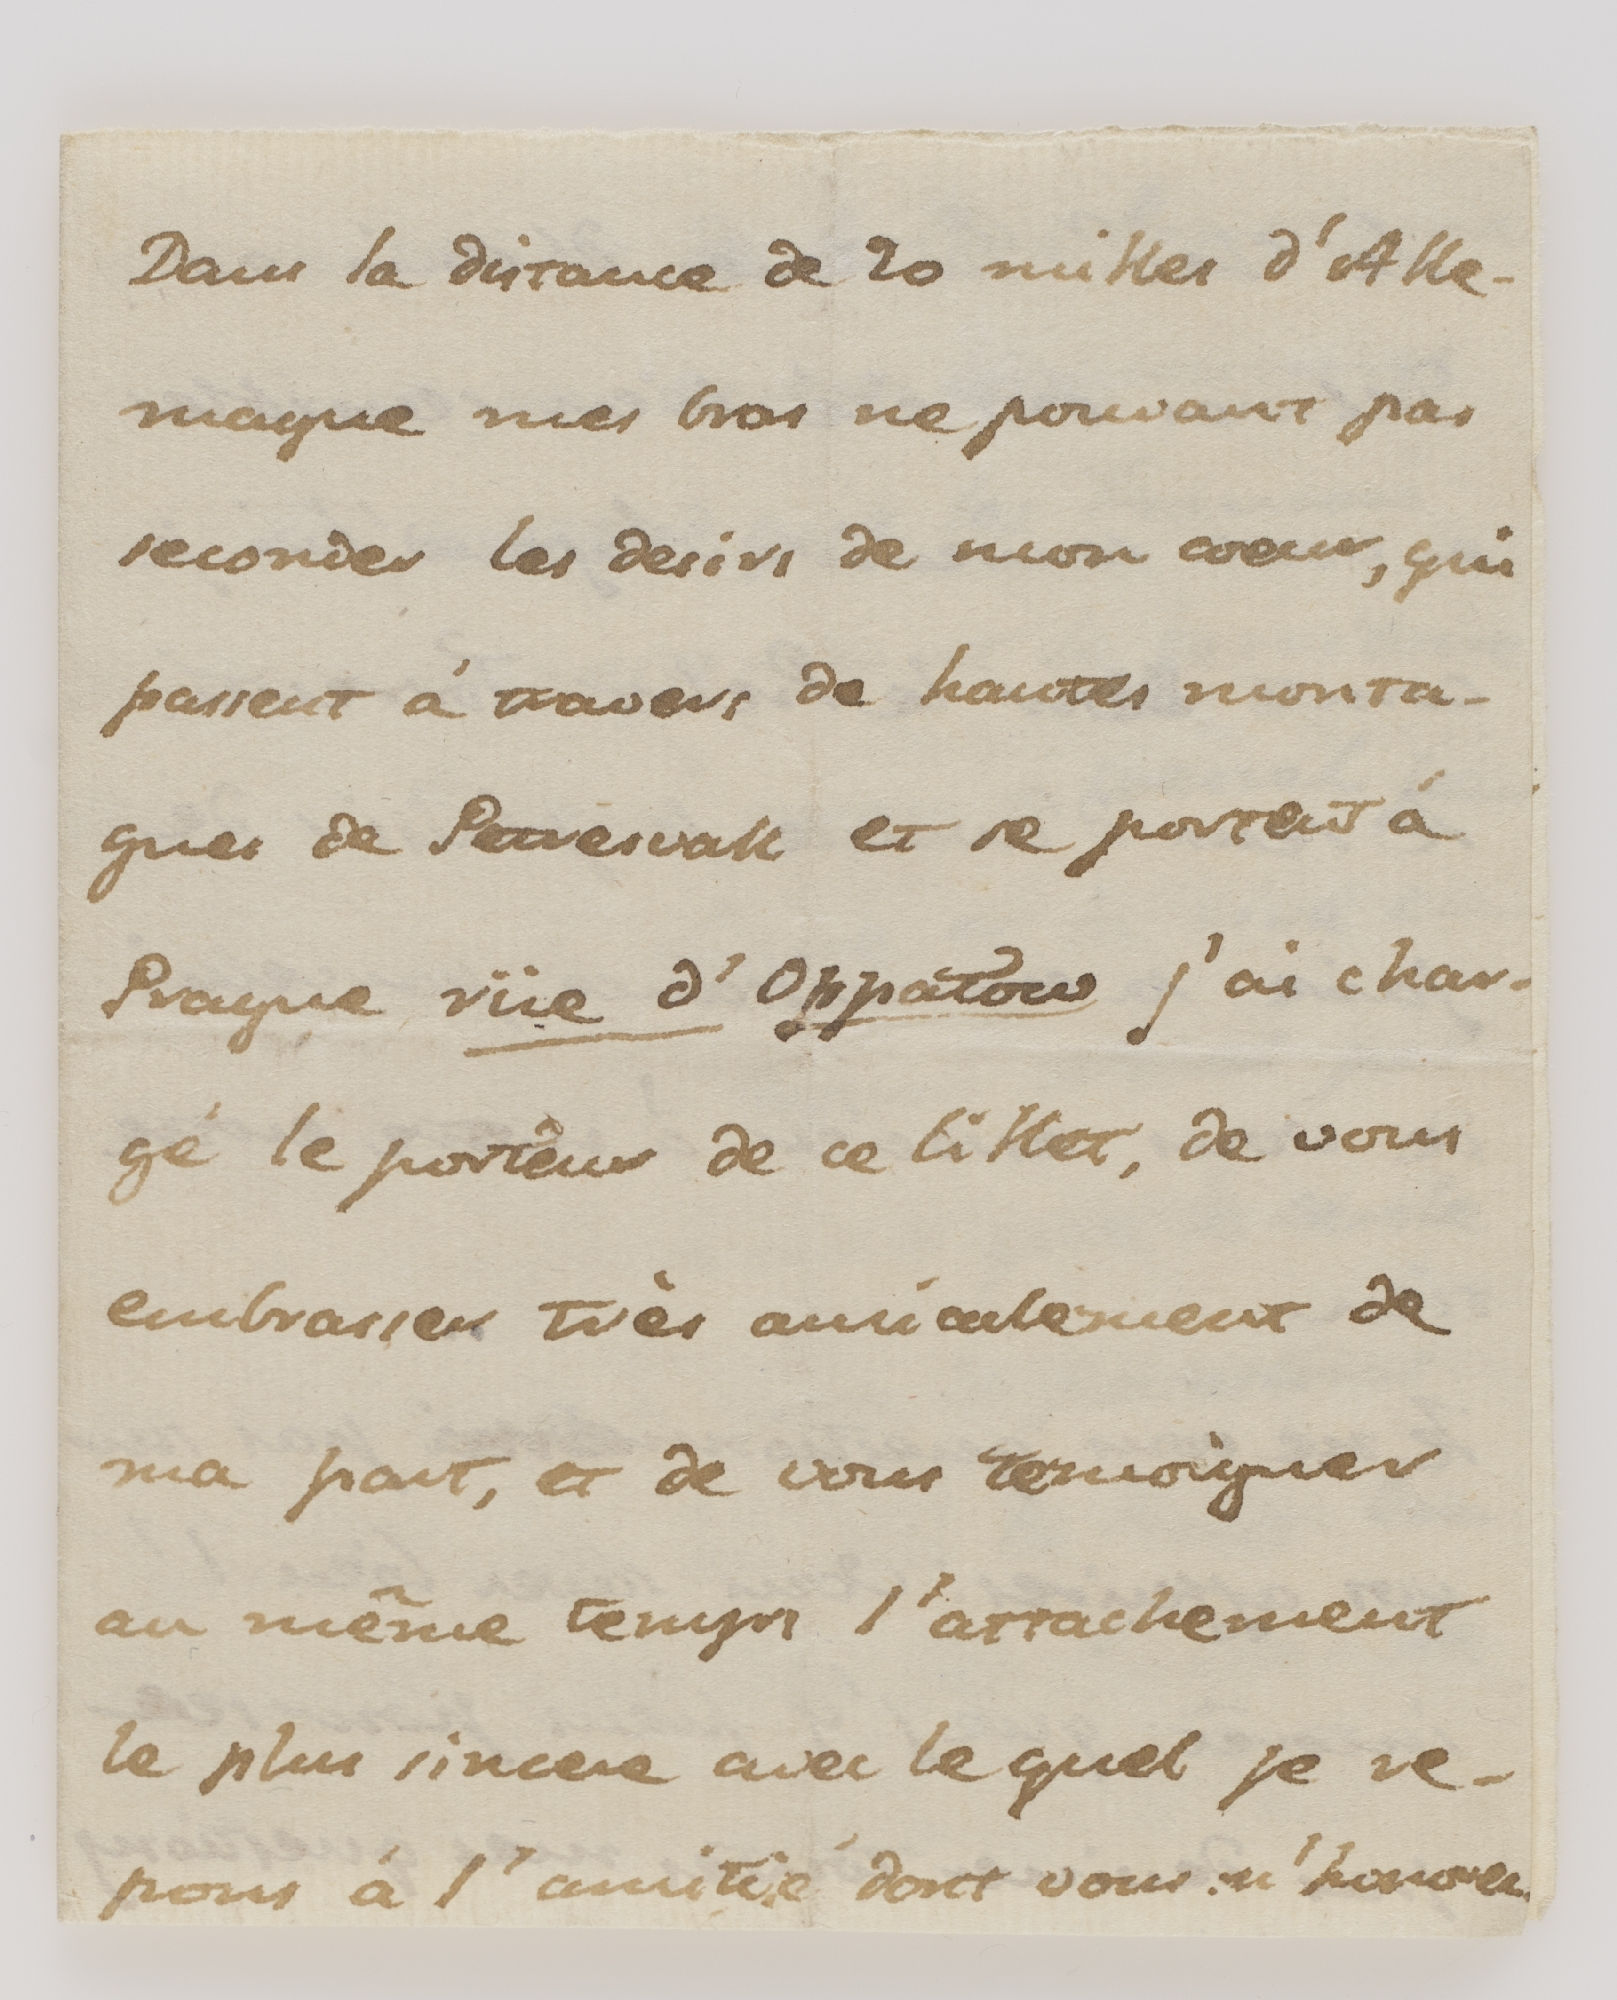 Dans la distance de 20 milles d'Alle-
magne mes bras ne pouvant pas
seconder les desirs de mon coeur, qui
passent á travers de hautes monta-
gnes de Petresvall et se portent á
Prague rüe d'Oppatow j'ai char-
gé le portêur de ce billet, de vous
embrasser très amicalement de
ma part, et de vous temoigner
au même temps l'attachement
le plus sincere avec le quel je re-
pons á l'amitié dont vous m'honorez